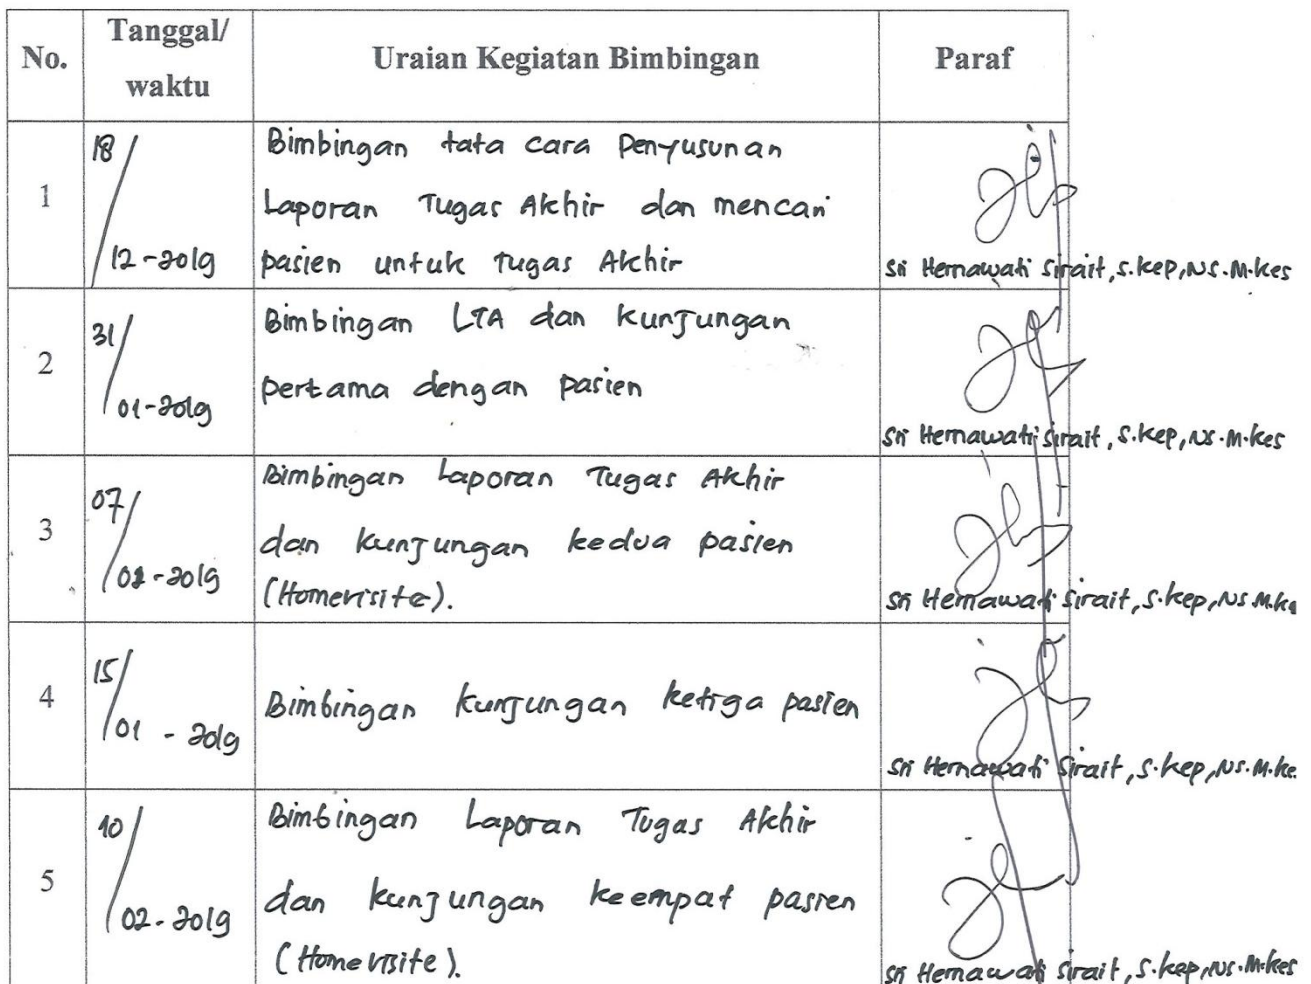 No. Tanggal/ waktu Uraian Kegiatan Bimbingan Paraf
1 18/12-2019 Bimbingan tata cara Penyusunan
Laporan Tugas Akhir dan mencari
pasien untuk Tugas Akhir
Sri Hernawati Sirait, S.kep,NS.M.kes
2 31/01-2019 Bimbingan LTA dan kunjungan
pertama dengan pasien
Sri Hernawati Sirait, S.kep,NS.M.kes
3 07/02-2019 Bimbingan Laporan Tugas Akhir
dan kunjungan kedua pasien
(Homevisite).
Sri Hernawati Sirait, S.kep,NS M.ke
4 15/01-2019 Bimbingan kunjungan ketiga pasien
Sri Hernawati Sirait, S.kep,NS.M.ke
5 10/02-2019 Bimbingan Laporan Tugas Akhir
dan kunjungan keempat pasien
(Homevisite).
Sri Hernawati Sirait, S.kep,NS.M.kes